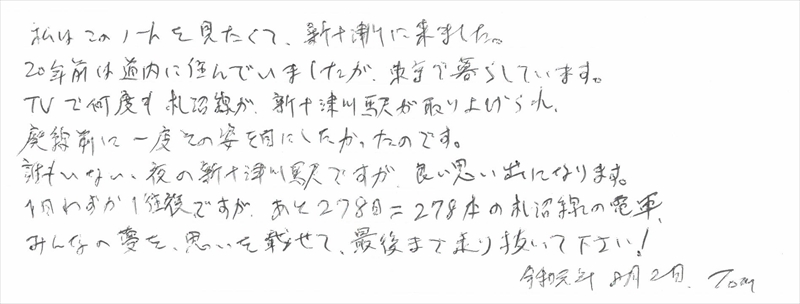 私はこのノートを見たくて、新十津川に来ました。
20年前は道内に住んでいましたが、東京で暮らしています。
TVで何度も札沼線が、新十津川駅が取り上げられ、
廃線前に一度その姿を目にしたかったのです。
誰もいない夜の新十津川駅ですが、良い思い出になります。
1日わずか1往復ですが、あと278日=278本の札沼線の電車、
みんなの夢を、思いを載せて、最後まで走り抜いて下さい!
令和元年 8月2日. Tom